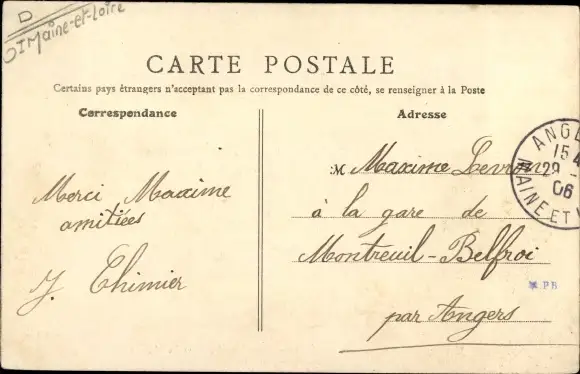 D
Maine-et-Loire
CARTE POSTALE
Certains pays étrangers n'acceptant pas la correspondance de ce côté, se renseigner à la Poste
Correspondance
Adresse
Merci Maxime
amitiées
J. Thimier
M Maxime Levron
à la gare de
Montreuil-Belfroi
par Angers
ANGE
15
29
06
MAINE ET
PB